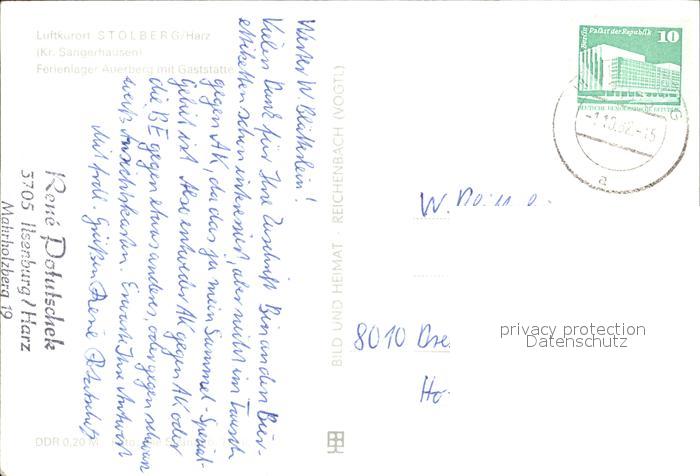 Luftkurort STOLBERG/Harz
(Kr. Sangerhausen)
Ferienlager Auerberg mit Gaststätte
Werter W. !
Vielen Dank für Ihre Zuschrift. Bin an den Bier-
etiketten schon interessiert, aber nicht im Tausch
gegen AK, da das ja mein Sammel-Spezial-
gebiet ist. Also entweder AK gegen AK oder
die BE gegen etwas anderes, oder gegen schwarz
weiß Ansichtskarten. Erwarte Ihre Antwort
Mit frdl. Grüßen René Potutschek
René Potutschek
3705 Ilsenburg/Harz
Mahrholzberg 19
DDR 0,20 M
BILD UND HEIMAT · REICHENBACH (VOGTL)
Berlin Palast der Republik
10
DEUTSCHE DEMOKRATISCHE REPUBLIK
-1.10.82-15
a
W.
8010 Dre
Ho
privacy protection
Datenschutz